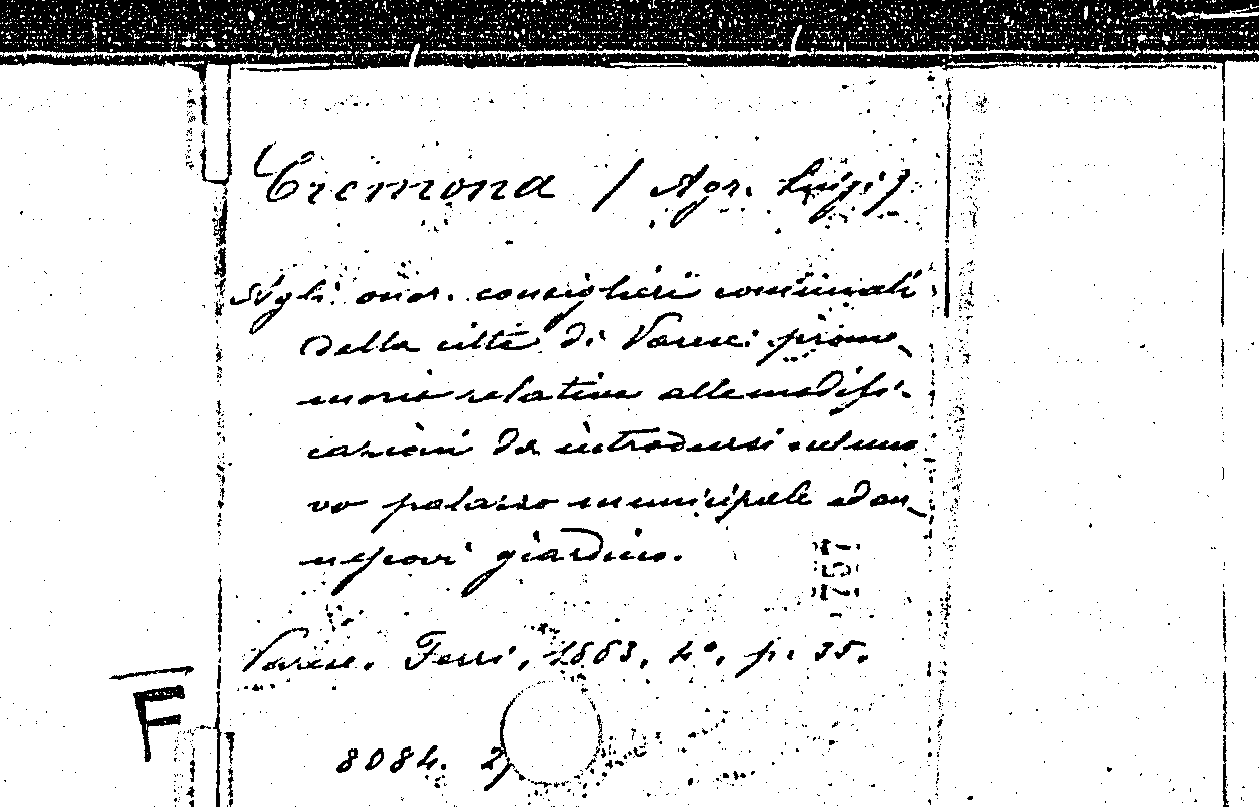 Cremona / Agr. Luigi /
Agli onor. consiglieri comunali
della città di Varese: prome-
moria relativa alle modifi-
cazioni da introdursi nel nuo
vo palazzo municipale ed an-
nessovi giardino.
757
Varese. Ferri, 1883, 4°. p. 35.
F
8084. 2)